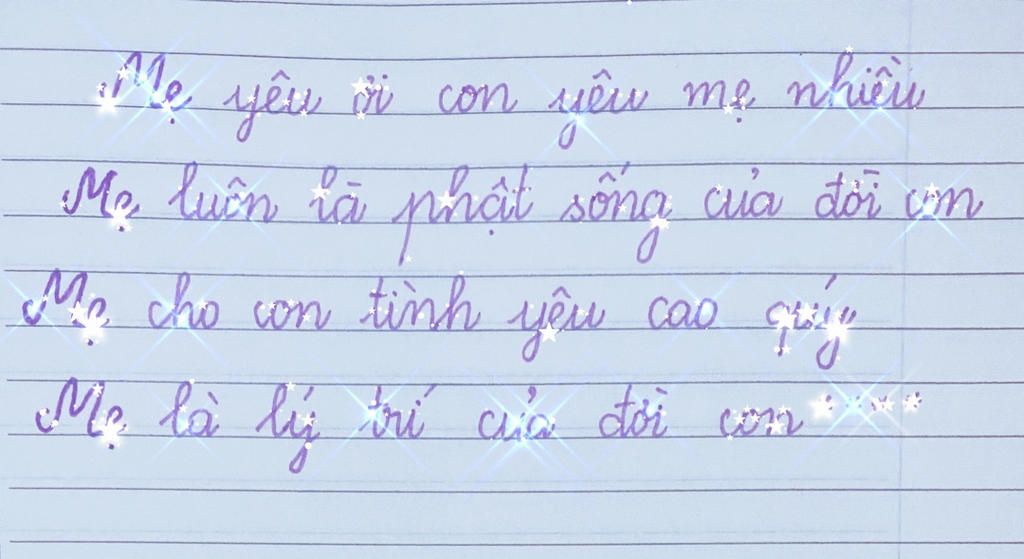 Mẹ yêu ơi con yêu mẹ nhiều
Mẹ luôn là phật sống của đời con
Mẹ cho con tình yêu cao quý
Mẹ là lý trí của đời con...